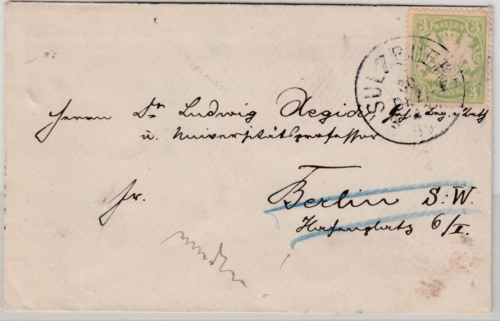 3 BAYERN 3
SULZBÜRG
Herrn Dr. Ludwig Aegidi,
u. Universitätsprofessor
fr. Berlin S.W.
Hafenplatz 6/II.